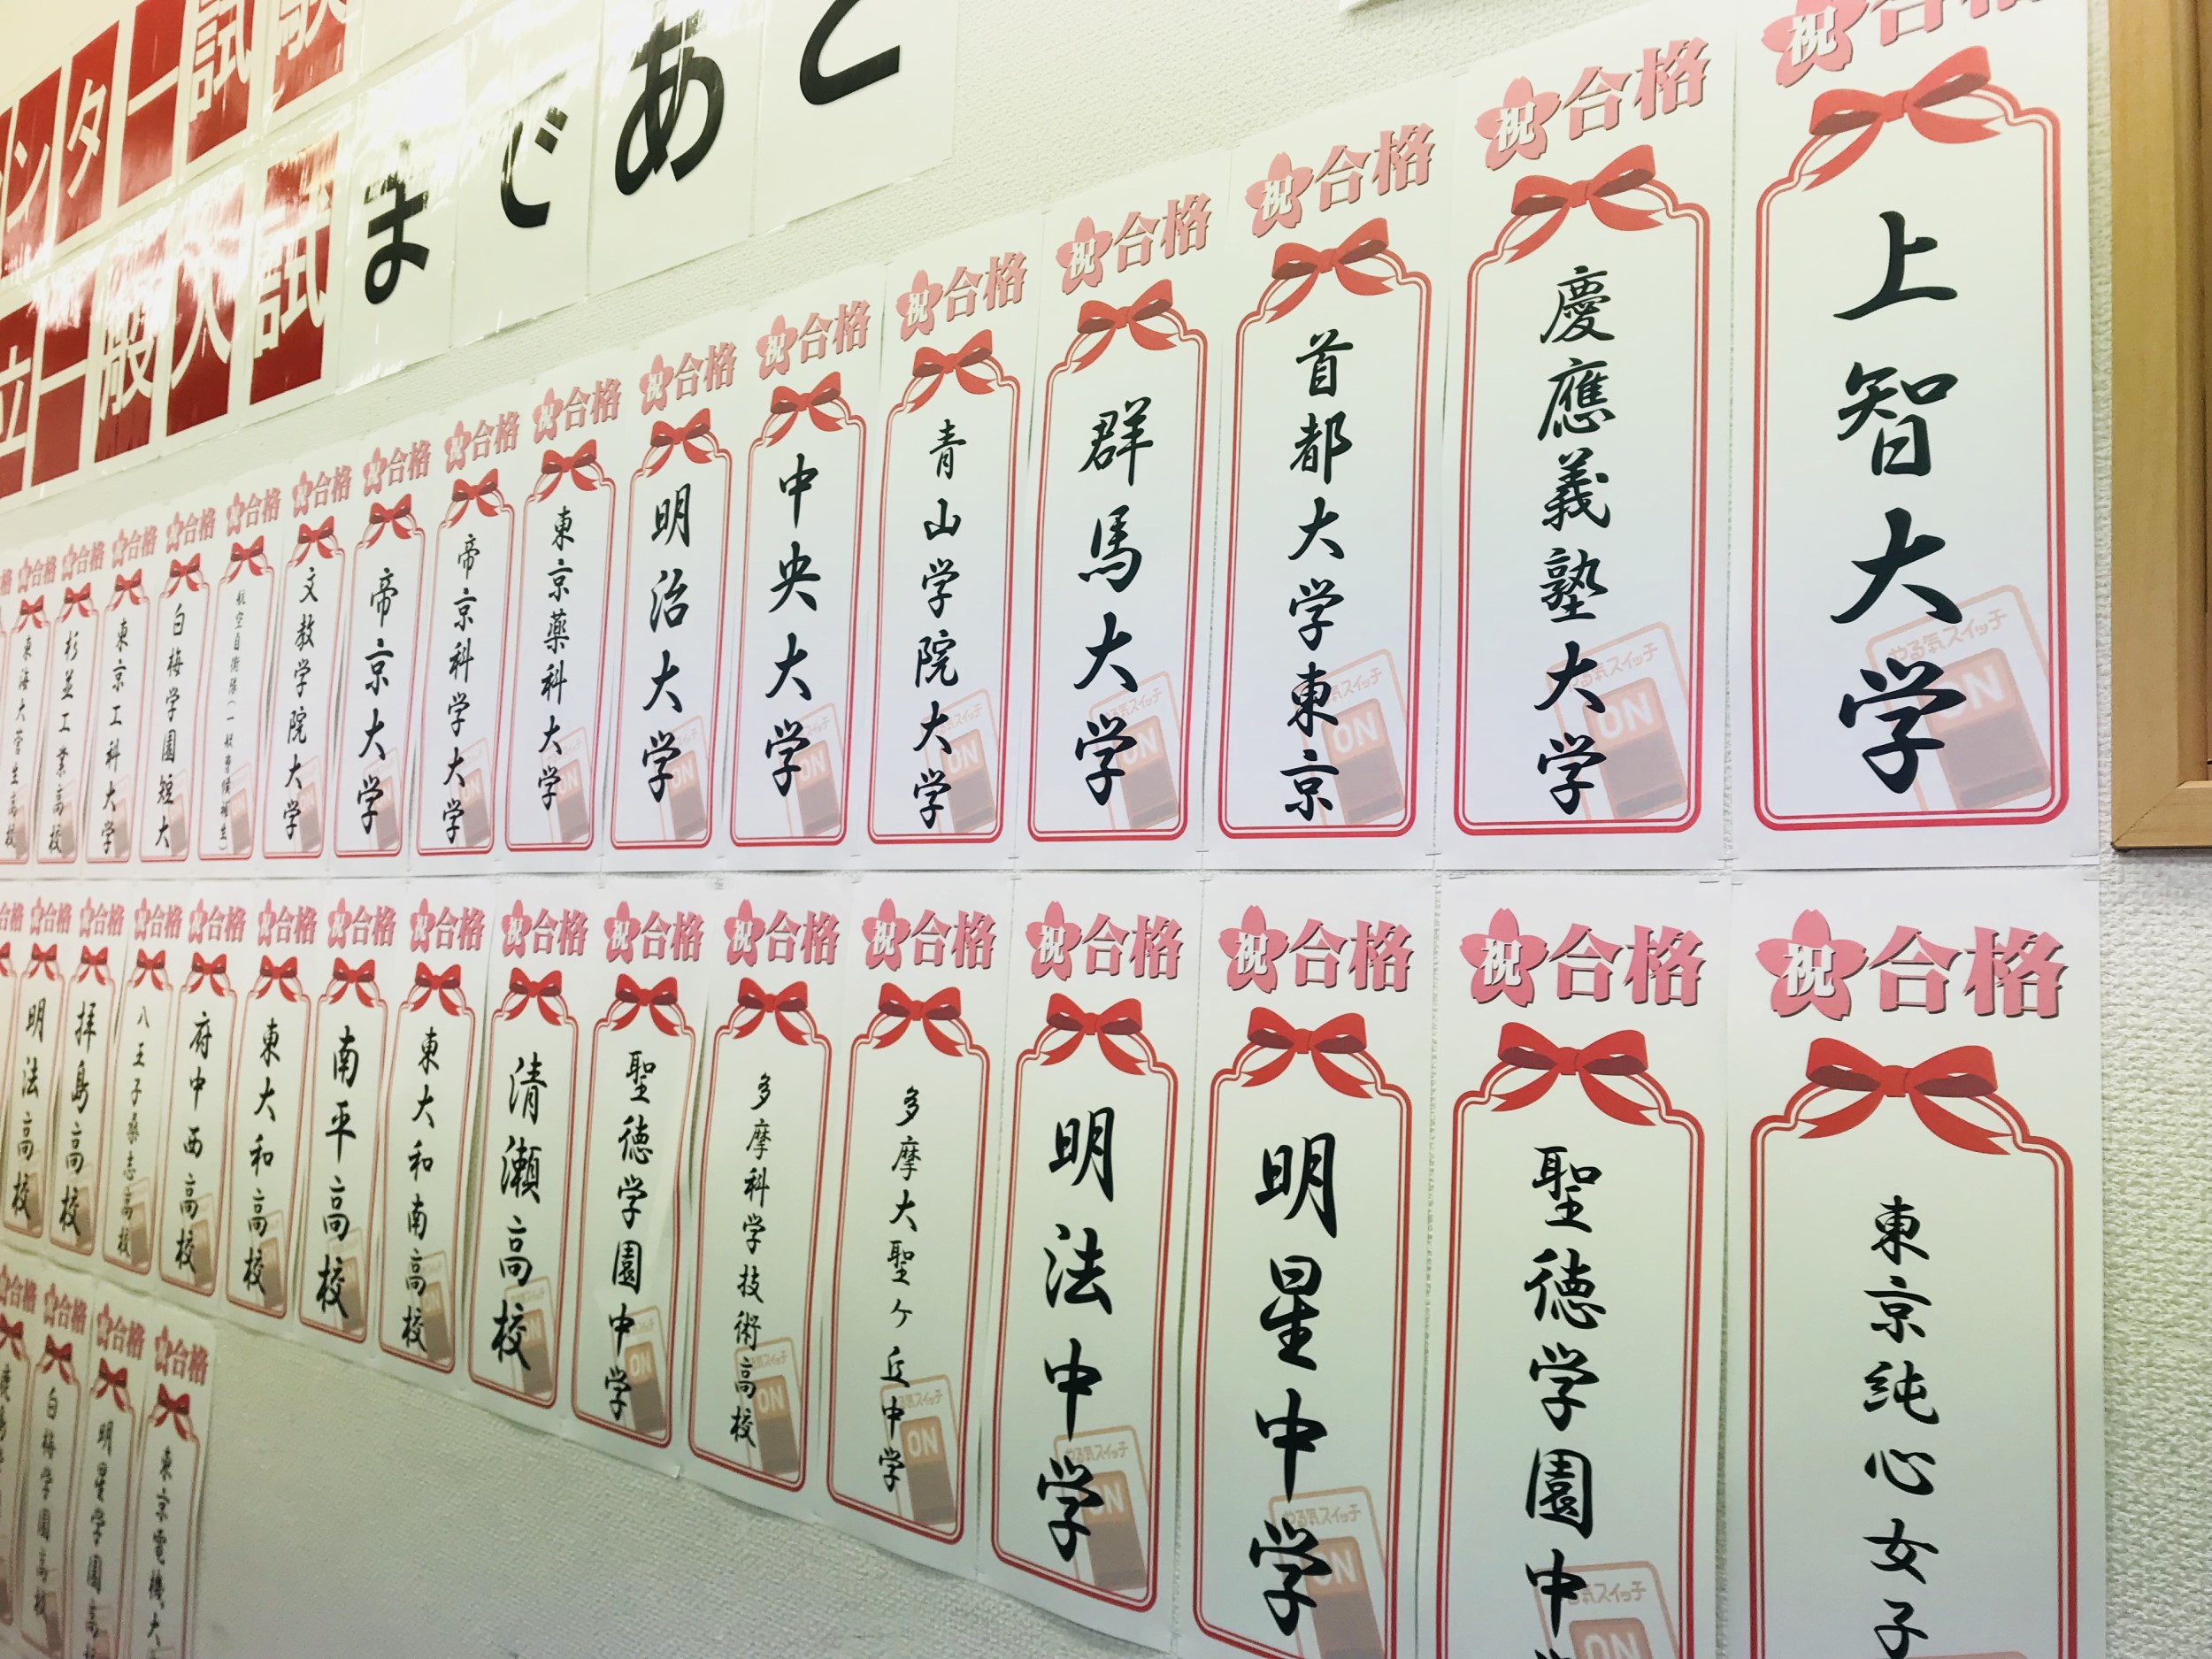 ンター試験
立一般入試
まであと
祝合格
上智大学
祝合格
慶應義塾大学
祝合格
首都大学東京
祝合格
群馬大学
祝合格
青山学院大学
祝合格
中央大学
祝合格
明治大学
祝合格
東京薬科大学
祝合格
帝京科学大学
祝合格
帝京大学
祝合格
文教学院大学
祝合格
航空自衛隊(一般曹候補生)
祝合格
白梅学園短大
祝合格
東京工科大学
祝合格
杉並工業高校
祝合格
東海大菅生高校
祝合格
東京純心女子
祝合格
聖徳学園中
祝合格
明星中学
祝合格
明法中学
祝合格
多摩大聖ヶ丘中学
祝合格
多摩科学技術高校
祝合格
聖徳学園中学
祝合格
清瀬高校
祝合格
東大和南高校
祝合格
南平高校
祝合格
東大和高校
祝合格
府中西高校
祝合格
八王子桑志高校
祝合格
拝島高校
祝合格
明法高校
祝合格
東京電機大
祝合格
明星学園高
祝合格
白梅学園高校
やる気スイッチ
ON